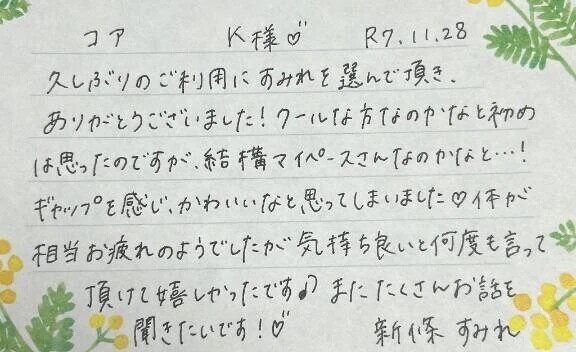 コア K様♡ R7.11.28
久しぶりのご利用にすみれを選んで頂き、
ありがとうございました！クールな方なのかなと初め
は思ったのですが、結構マイペースさんなのかなと…！
ギャップを感じ、かわいいなと思ってしまいました♡体が
相当お疲れのようでしたが気持ち良いと何度も言って
頂けて嬉しかったです♪またたくさんお話を
聞きたいです！♡ 新條 すみれ